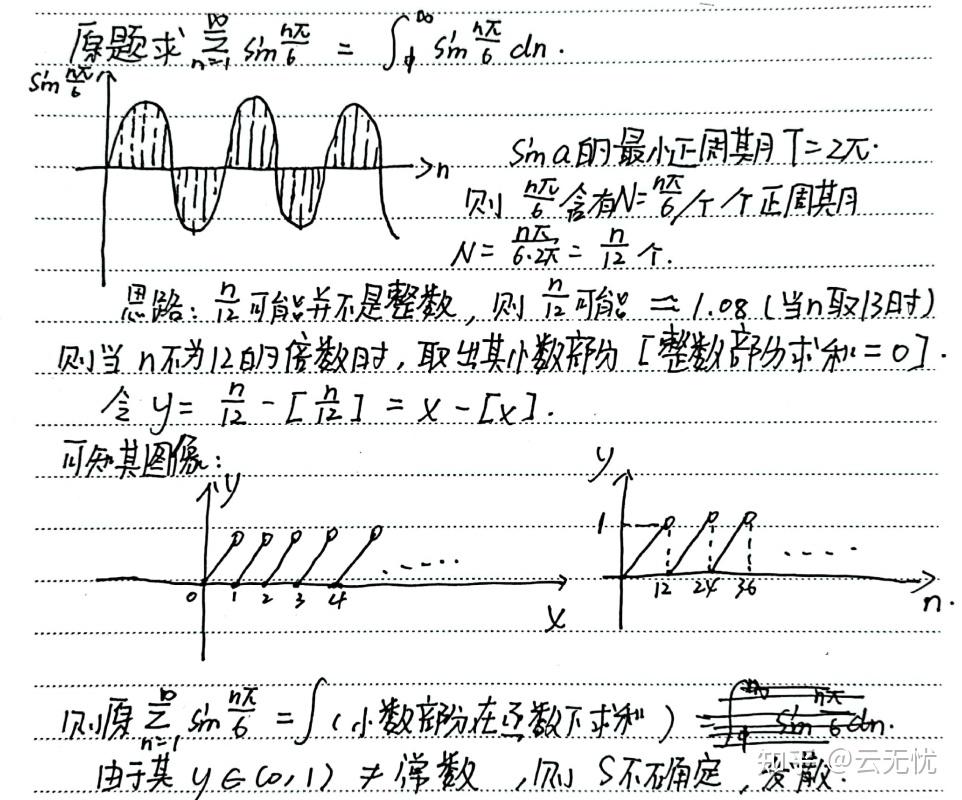 原题求 ∑_{n=1}^{∞} sin nπ/6 = ∫_{1}^{∞} sin nπ/6 dn.
sin nπ/6
n
sin a的最小正周期 T=2π.
则 nπ/6 含有N=nπ/6/T 个正周期
N = nπ/6·2π = n/12 个.
思路: n/12 可能并不是整数, 则 n/12 可能 = 1.08 (当n取13时)
则当 n不为12的倍数时, 取出其小数部分 [整数部分求和=0].
令 y = n/12 - [n/12] = x - [x].
可知其图像:
y
0 1 2 3 4 ......
x
y
1
12 24 36 .....
n.
则原 ∑_{n=1}^{∞} sin nπ/6 = ∫(小数部分在函数下求和)
由于其 y∈(0,1) ≠ 常数, 则 S不确定, 发散.
知乎 @云无忧